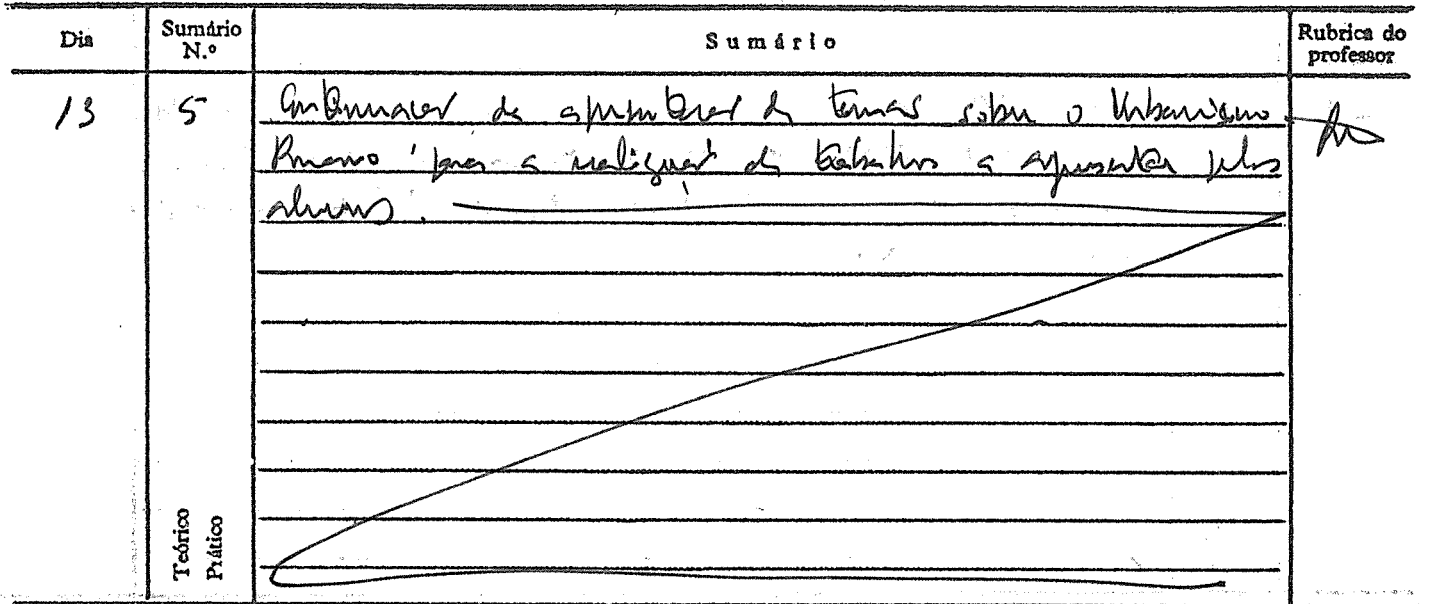 Dia Sumário N.º Sumário Rubrica do professor
13 5 Continuação da apresentação de temas sobre o Urbanismo
Romano para a realização de trabalhos a apresentar pelos
alunos.
Teórico
Prático